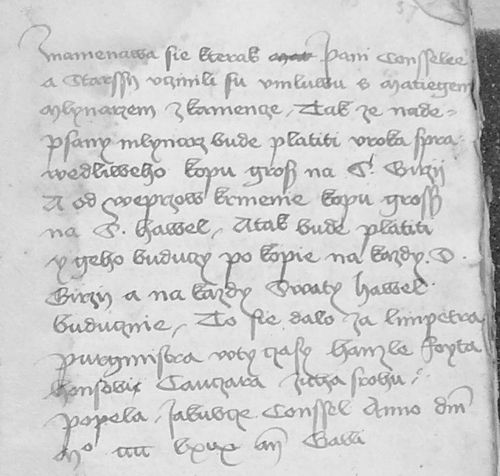 Znamenawa sie kterak Pani Conssele
a Starssy vczinili su vmluwu s Matiegem
Mlynarzem z kamencze, Tak ze nade-
psany mlynarz bude platiti vroka spra
wedliweho kopu gross na S. Girzij
A od weprzow krmenie kopu gross
na S. Hawel, Atak bude platiti
y geho buduczy po kopie na kazdy S.
Girzij a na kazdy Swaty Hawel
buduczie, To sie dalo za limpetra
purgmistra voty czasy hanzle foyta
Cauczara
popela, Jakubcze Conssel Anno dni